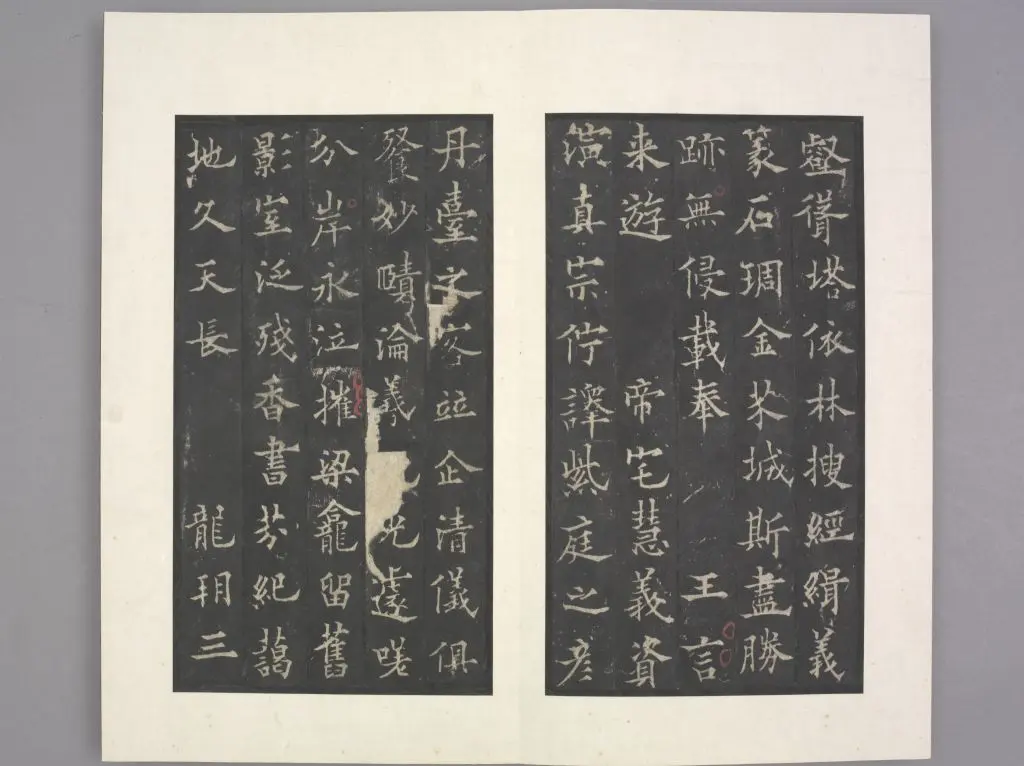 壑塔依林搜經緝義
篆石琱金芥城斯盡勝
跡無侵載奉 王言
来遊 帝宅慧義資
演真宗佇譯紫庭之彦
丹臺之客並企清儀俱
餐妙賾淪羲光遽嗟
分岸永泣摧梁龕留舊
影室泛殘香書芬紀藹
地久天長 龍朔三